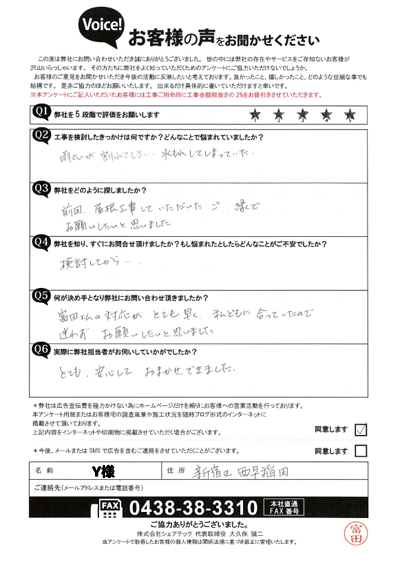 Voice!
お客様の声をお聞かせください
この度は弊社にお問い合わせいただき誠にありがとうございました。世の中には弊社の存在やサービスをご存知ないお客様が
沢山いらっしゃいます。その方たちに弊社をよく知っていただくためのアンケートにご協力いただけないでしょうか。
お客様のご意見をお聞かせいただき今後の活動に反映したいと考えております。良かったこと、嬉しかったこと、どのような些細な事でも
結構です。是非ご協力のほどお願いいたします。出来るだけ具体的に書いていただけますと幸いです。
※本アンケートにご記入いただいたお客様には工事ご用命時に工事金額税抜きの2%をお値引きさせていただきます。
Q1 弊社を5段階で評価をお願いします ★ ★ ★ ★ ★
Q2 工事を検討したきっかけは何ですか?どんなことで悩まれていましたか?
雨といが割れてしまい… 水もれしてしまっていた。
Q3 弊社をどのように探しましたか?
前回、屋根工事していただいたご縁で
お願いしたいと思いました
Q4 弊社を知り、すぐにお問合せ頂けましたか?もし悩まれたとしたらどんなことがご不安でしたか?
検討してから…。
Q5 何が決め手となり弊社にお問い合わせ頂きましたか?
富田さんの対応がとても早く、私どもに合っていたので
迷わずお願いしたいと思いました
Q6 実際に弊社担当者がお伺いしていかがでしたか?
とても、安心しておまかせできました。
*弊社は広告宣伝費を極力かけない為にホームページだけを頼りにお客様への営業活動を行っております。
本アンケート用紙またはお客様宅の調査風景や施工状況を随時ブログ形式のインターネットに
掲載させて頂いております。
上記内容をインターネットや印刷物に掲載させていただく場合がございます。 同意します ☑
*今後、メールまたはSMSで広告を含むご連絡をさせていただくことがございます。 同意します □
名前 Y様 住所 新宿区西早稲田
ご連絡先(メールアドレスまたは電話番号)
FAX 0438-38-3310 本社直通 FAX番号
ご協力ありがとうございました。
株式会社シェアテック 代表取締役 大久保 誠二
当アンケートで取得したお客様の個人情報は関係法規に基づき厳正に管理いたします。
富田